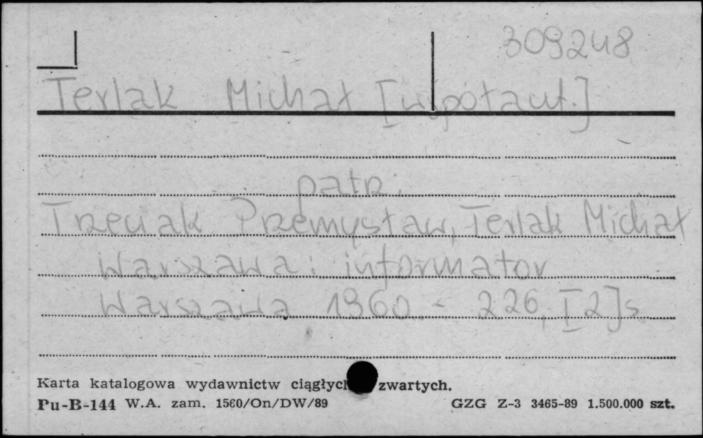 309248
Terlak Michał [współaut.]
patrz:
Trzeciak Przemysław, Terlak Michał
Warszawa: informator
Warszawa 1960.- 226, [2] s.
Karta katalogowa wydawnictw ciągłych zwartych.
Pu-B-144 W.A. zam. 1560/On/DW/89 GZG Z-3 3465-89 1.500.000 szt.